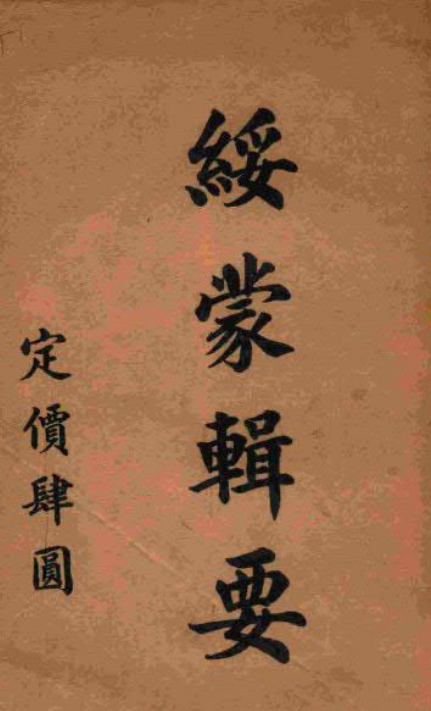 綏蒙輯要
定價肆圓